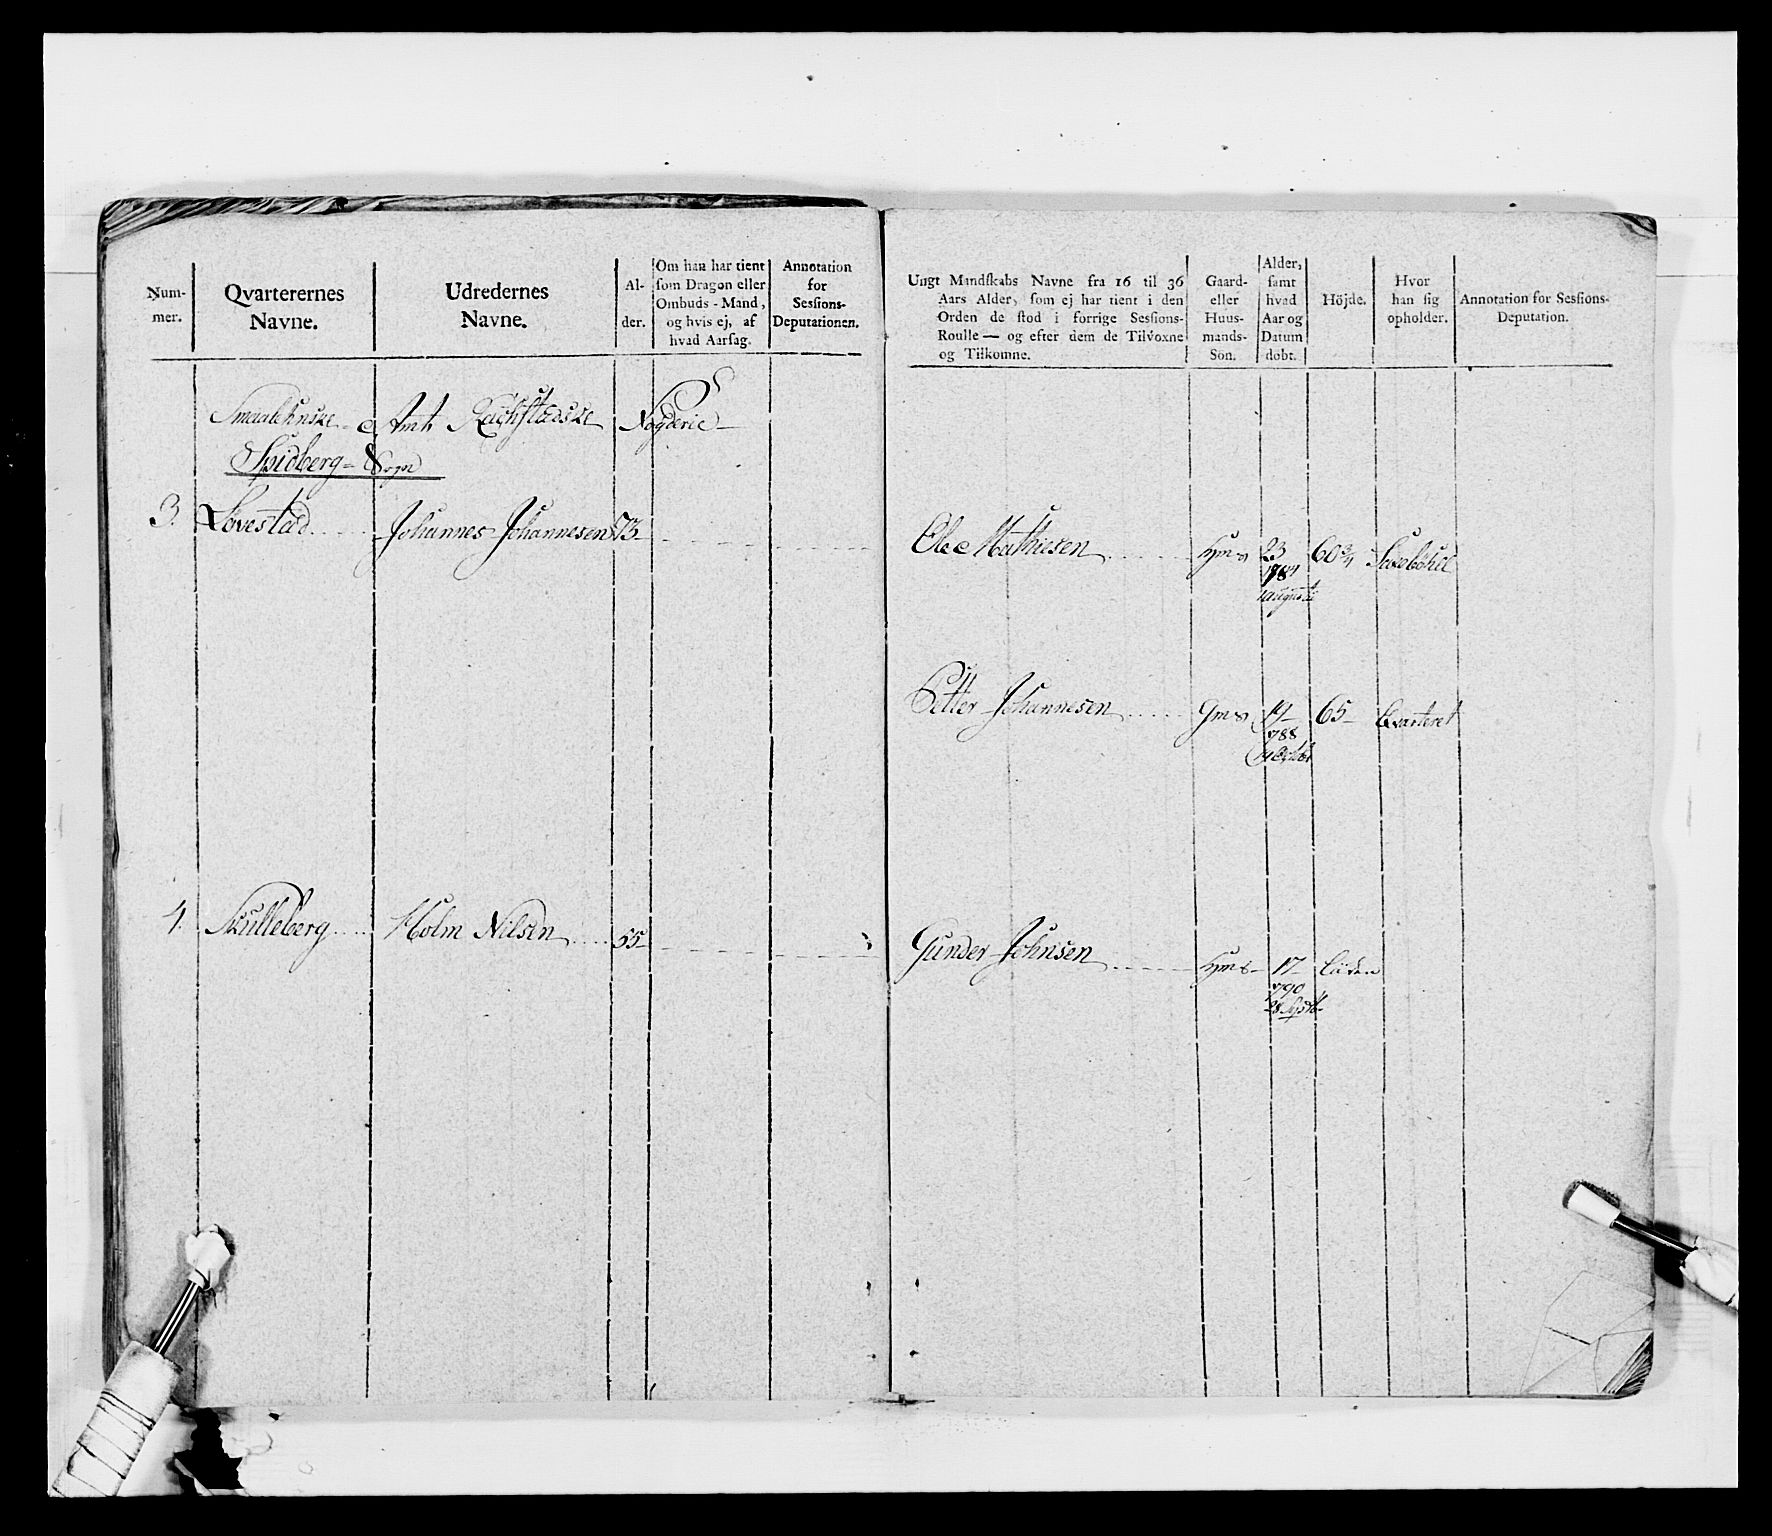 Num-
mer.
Qvarterernes
Navne.
Udredernes
Navne.
Al-
der.
Om han har tient
som Dragon eller
Ombuds-Mand,
og hvis ej, af
hvad Aarsag.
Annotation
for
Sessions-
Deputationen.
Ungt Mandskabs Navne fra 16 til 36
Aars Alder, som ej har tient i den
Orden de stod i forrige Sessions-
Roulle — og efter dem de Tilvoxne
og Tilkomne.
Gaard-
eller
Huus-
mands-
Sön.
Alder,
samt
hvad
Aar og
Datum
döbt.
Höjde.
Hvor
han sig
opholder.
Annotation for Sessions-
Deputation.
Smaalehnske Amt Fogderie
Spidberg Sogn
3. Lovestad Johannes Johannesen 73
Ole Mathiesen Hms 23 60 3/4
1784
august
Petter Johannesen Gms 19 65 Qvarteret
788
Octbr
4. Skulleberg Holm Nilsen 55
Gunder Johnsen Hms 17 Liden
790
28 Septb